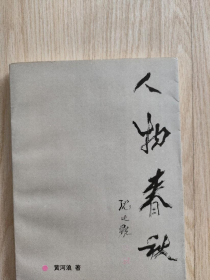 人物春秋
黄河浪 著